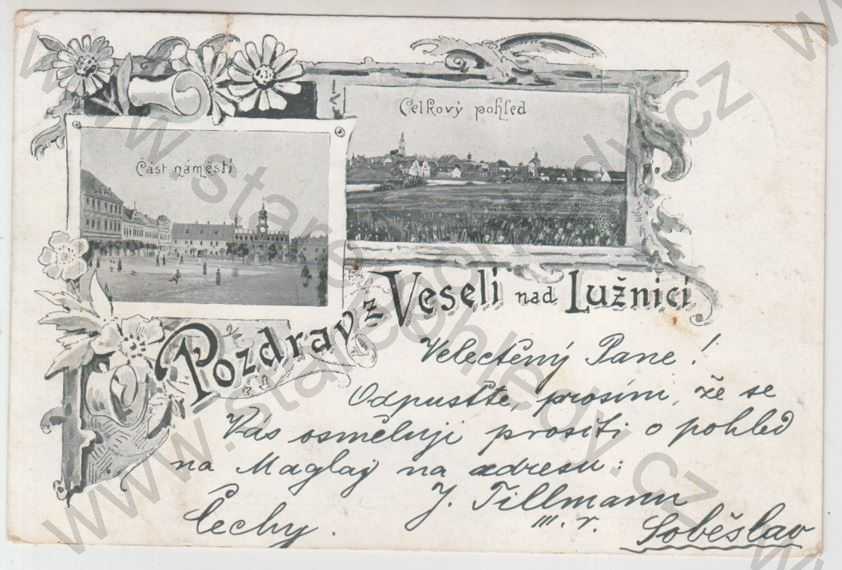 Celkový pohled
Část náměstí
Pozdrav z Veselí nad Lužnicí
Velectěný Pane!
Odpusťte, prosím, že se
Vás osměluji prositi o pohled
na Maglaj na adresu:
J. Tillmann
Čechy.
m. r.
Soběslav
www.starepohledy.cz